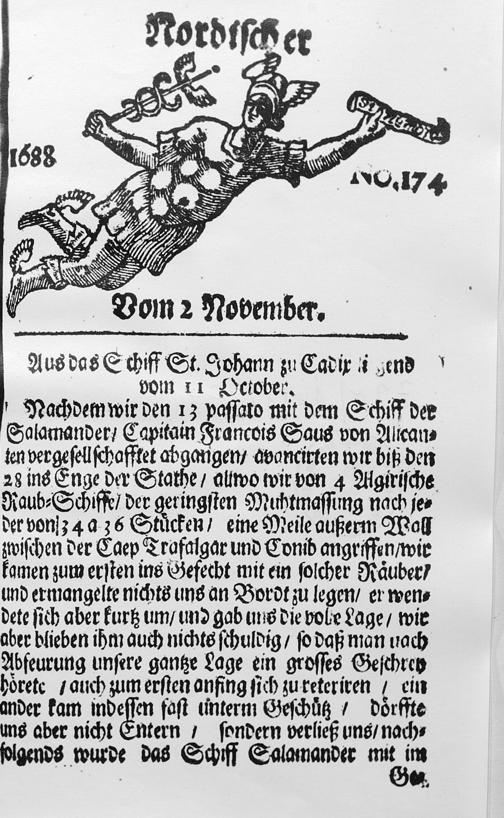 Nordischer
1688
No. 174
Vom 2 November.
Aus das Schiff St. Johann zu Cadix ligend
vom 11 October.
Nachdem wir den 13 passato mit dem Schiff der
Salamander/ Capitain Francois Saus von Alican-
ten vergesellschafftet abgangen/ avancirten wir biß den
28 ins Enge der Strathe/ allwo wir von 4 Algirische
Raub-Schiffe/ der geringsten Muhtmassung nach je-
der von 34 a 36 Stücken/ eine Meile außerm Wall
zwischen der Caep Trafalgar und Conib angriffen/wir
kamen zum ersten ins Gefecht mit ein solcher Räuber/
und ermangelte nichts uns an Bordt zu legen/ er wen-
dete sich aber kurtz um/ und gab uns die volle Lage/ wir
aber blieben ihm auch nichts schuldig/ so daß man nach
Abfeurung unsere gantze Lage ein grosses Geschrey
hörete / auch zum ersten anfing sich zu reteriren / ein
ander kam indessen fast unterm Geschütz / dörffte
uns aber nicht Entern / sondern verließ uns/ nach-
folgends wurde das Schiff Salamander mit im
Ge-